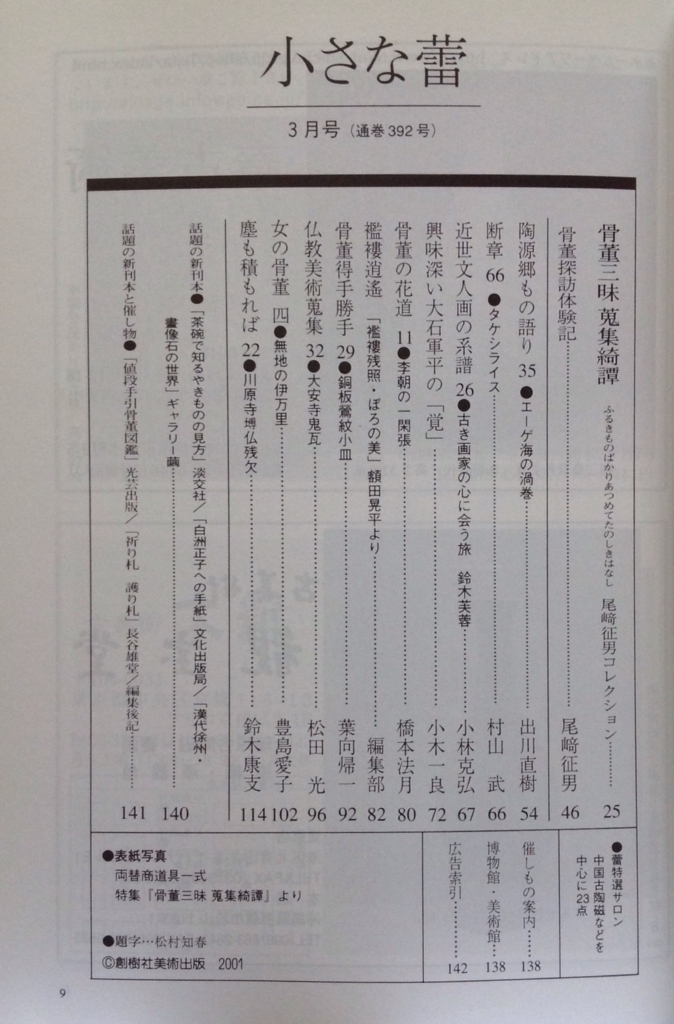 小さな蕾
3月号（通巻392号）
骨董三昧 蒐集綺譚 ふるきものばかりあつめてたのしきはなし 尾﨑征男コレクション………… 25
骨董探訪体験記………… 尾﨑征男 46
陶源郷もの語り 35 ●エーゲ海の渦巻………… 出川直樹 54
断章 66 ●タケシライス………… 村山 武 66
近世文人画の系譜 26 ●古き画家の心に会う旅 鈴木芙蓉………… 小林克弘 67
興味深い大石軍平の「覚」………… 小木一良 72
骨董の花道 11 ●李朝の一閑張………… 橋本法月 80
襤褸逍遙 「襤褸残照・ぼろの美」額田晃平より………… 編集部 82
骨董得手勝手 29 ●銅板鶯紋小皿………… 葉向帰一 92
仏教美術蒐集 32 ●大安寺鬼瓦………… 松田 光 96
女の骨董 四 ●無地の伊万里………… 豊島愛子 102
塵も積もれば 22 ●川原寺塼仏残欠………… 鈴木康支 114
話題の新刊本●「茶碗で知るやきものの見方」淡交社／「白洲正子への手紙」文化出版局／「漢代徐州・
畫像石の世界」ギャラリー繭………… 140
話題の新刊本と催し物●「値段手引骨董図鑑」光芸出版／「祈り札 護り札」長谷雄堂／編集後記………… 141
●蕾特選サロン
中国古陶磁などを
中心に23点
催しもの案内………… 138
博物館・美術館………… 138
広告索引………… 142
●表紙写真
両替商道具一式
特集『骨董三昧 蒐集綺譚』より
●題字…松村知春
©創樹社美術出版 2001
9